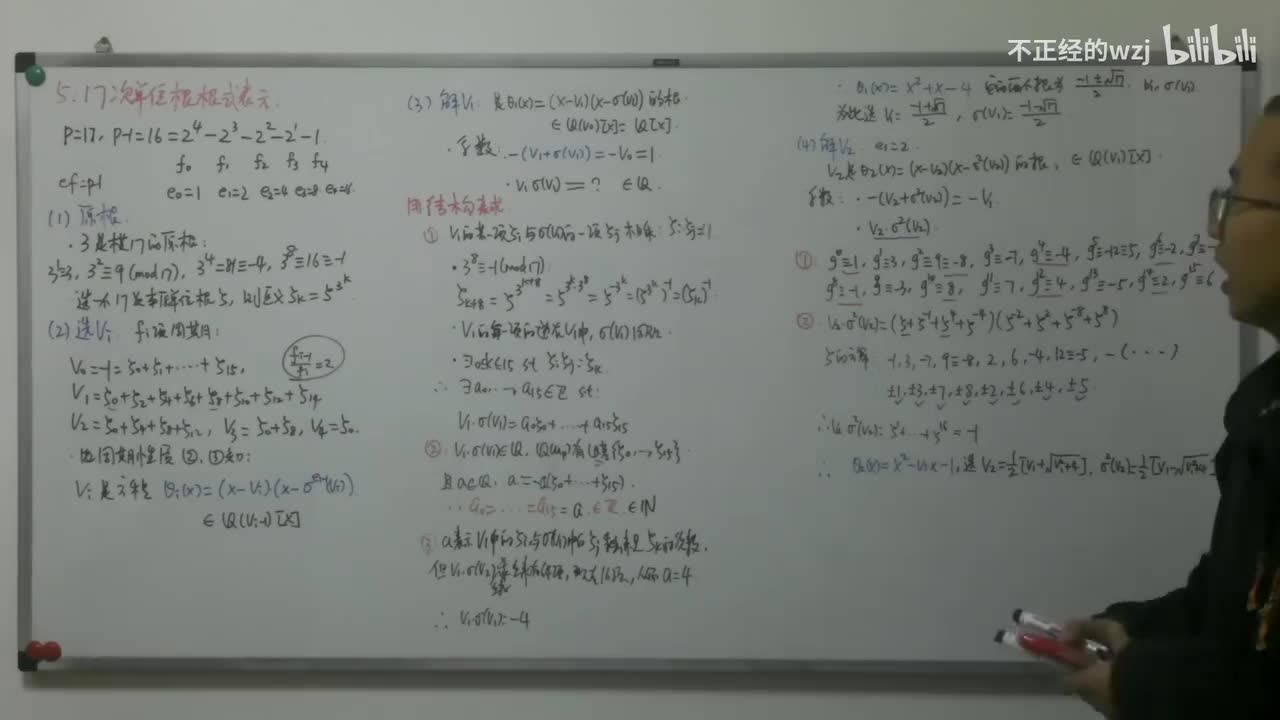 不正经的wzj bilibili
5.17次单位根根式表示
P=17, P-1=16=2⁴-2³-2²-2¹-1
f₀ f₁ f₂ f₃ f₄
ef=p-1 e₀=1 e₁=2 e₂=4 e₃=8
(1) 原根
·3是模17的原根:
3¹≡3, 3²≡9(mod 17), 3⁴≡81≡-4, 3⁸≡16≡-1
选一个17次本原单位根ζ, 则定义ζₖ=ζ^{3^k}
(2) 选Vᵢ fᵢ项周期
V₀=-1=ζ₀+ζ₁+……+ζ₁₅,
V₁=ζ₀+ζ₂+ζ₄+ζ₆+ζ₈+ζ₁₀+ζ₁₂+ζ₁₄
V₂=ζ₀+ζ₄+ζ₈+ζ₁₂, V₃=ζ₀+ζ₈, V₄=ζ₀.
·由周期性质②,③知:
Vᵢ是方程 θᵢ(x)=(x-Vᵢ)(x-σ^{eᵢ₋₁}(Vᵢ))
∈Q(Vᵢ₋₁)[x]
f_{i-1}/fᵢ=2
(3) 解V₁ 是θ₁(x)=(x-V₁)(x-σ(V₁))的根
∈Q(V₀)[x]=Q[x].
·系数:-(V₁+σ(V₁))=-V₀=1
·V₁σ(V₁)=? ∈Q.
用结构来求
① V₁的某一项ζᵢ与σ(V₁)的一项ζⱼ ζᵢ·ζⱼ=1
·3⁸≡-1(mod 17)
ζ_{k+8}=ζ^{3^{k+8}}=ζ^{3^k·3^8}=ζ^{-3^k}=(ζ^{3^k})⁻¹=(ζₖ)⁻¹
·V₁的每一项的逆在V₁中, σ(V₁)
·∃0≤k≤15 st ζᵢζⱼ=ζₖ
∴ ∃a₀,…,a₁₅∈Z st:
V₁·σ(V₁)=a₀ζ₀+…+a₁₅ζ₁₅
② V₁·σ(V₁)∈Q, 有Q基{ζ₀,…,ζ₁₅}
且a∈Q, a=-a(ζ₀+…+ζ₁₅).
∴a₀=……=a₁₅=a.∈Z.∈N
③ a表示V₁中的ζᵢ与σ(V₁)中的ζⱼ ζₖ的次数,
16, 从而a=4
∴ V₁·σ(V₁)=-4
·θ₁(x)=x²+x-4 它的两个根为 (-1±√17)/2 V₁,σ(V₁)
为此选V₁=(-1+√17)/2, σ(V₁)=(-1-√17)/2
(4) 解V₂ e₁=2
V₂是θ₂(x)=(x-V₂)(x-σ²(V₂))的根, ∈Q(V₁)[x].
系数: ·-(V₂+σ²(V₂))=-V₁
·V₂·σ²(V₂)
① g⁰≡1, g¹≡3, g²≡9≡-8, g³≡-7, g⁴≡-4, g⁵≡-12≡5, g⁶≡-2, g⁷≡-
g⁸≡-1, g⁹≡-3, g¹⁰≡8, g¹¹≡7, g¹²≡4, g¹³≡-5, g¹⁴≡2, g¹⁵≡6
② V₂·σ²(V₂)=(ζ+ζ⁻¹+ζ⁴+ζ⁻⁴)(ζ⁻²+ζ²+ζ⁻⁸+ζ⁸)
ζ的方幂: -1, 3, -7, 9≡-8, 2, 6, -4, 12≡-5, -(····)
±1, ±3, ±7, ±8, ±2, ±6, ±4, ±5.
∴V₂·σ²(V₂)=ζ+…+ζ¹⁶=-1
∴ θ₂(x)=x²-V₁x-1, 选V₂=½[V₁+√(V₁²+4)], σ²(V₂)=½[V₁-√(V₁²+4)